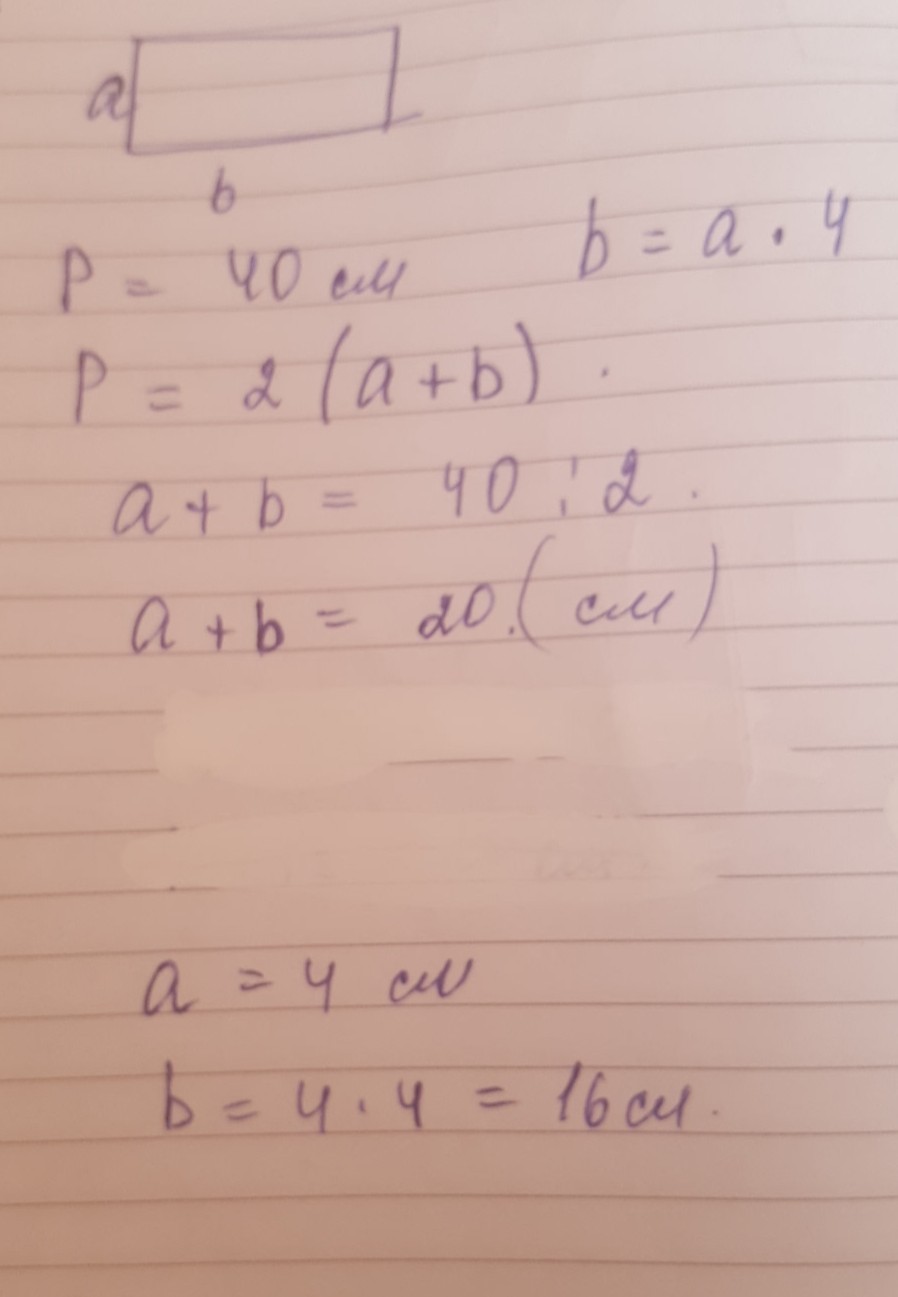 a
b
P = 40 см b = a · 4
P = 2 (a + b) .
a + b = 40 : 2 .
a + b = 20. (см)
a = 4 см
b = 4 · 4 = 16 см.